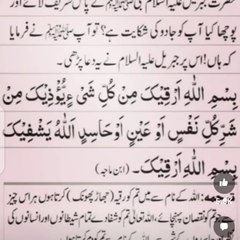 حضرت جبریل علیہ السلام نبی ﷺ کے پاس تشریف لائے اور
پوچھا کیا آپ کو جادو کی شکایت ہے؟ تو آپ ﷺ نے فرمایا
کہ ہاں! اس پر جبریل علیہ السلام نے یہ دعا پڑھی۔
بِسْمِ اللّٰهِ اَرْقِيْكَ مِنْ كُلِّ شَيْءٍ يُّؤْذِيْكَ مِنْ
شَرِّ كُلِّ نَفْسٍ اَوْ عَيْنٍ اَوْ حَاسِدٍ اَللّٰهُ يَشْفِيْكَ
بِسْمِ اللّٰهِ اَرْقِيْكَ۔ (ابن ماجہ)
اللہ کے نام سے میں تم کو رقیہ (جھاڑ پھونک) کرتا ہوں ہر اس چیز
تم کو نقصان پہنچائے، اللہ تعالیٰ تم کو شفا دے تمام شیطانوں اور انسانوں کی